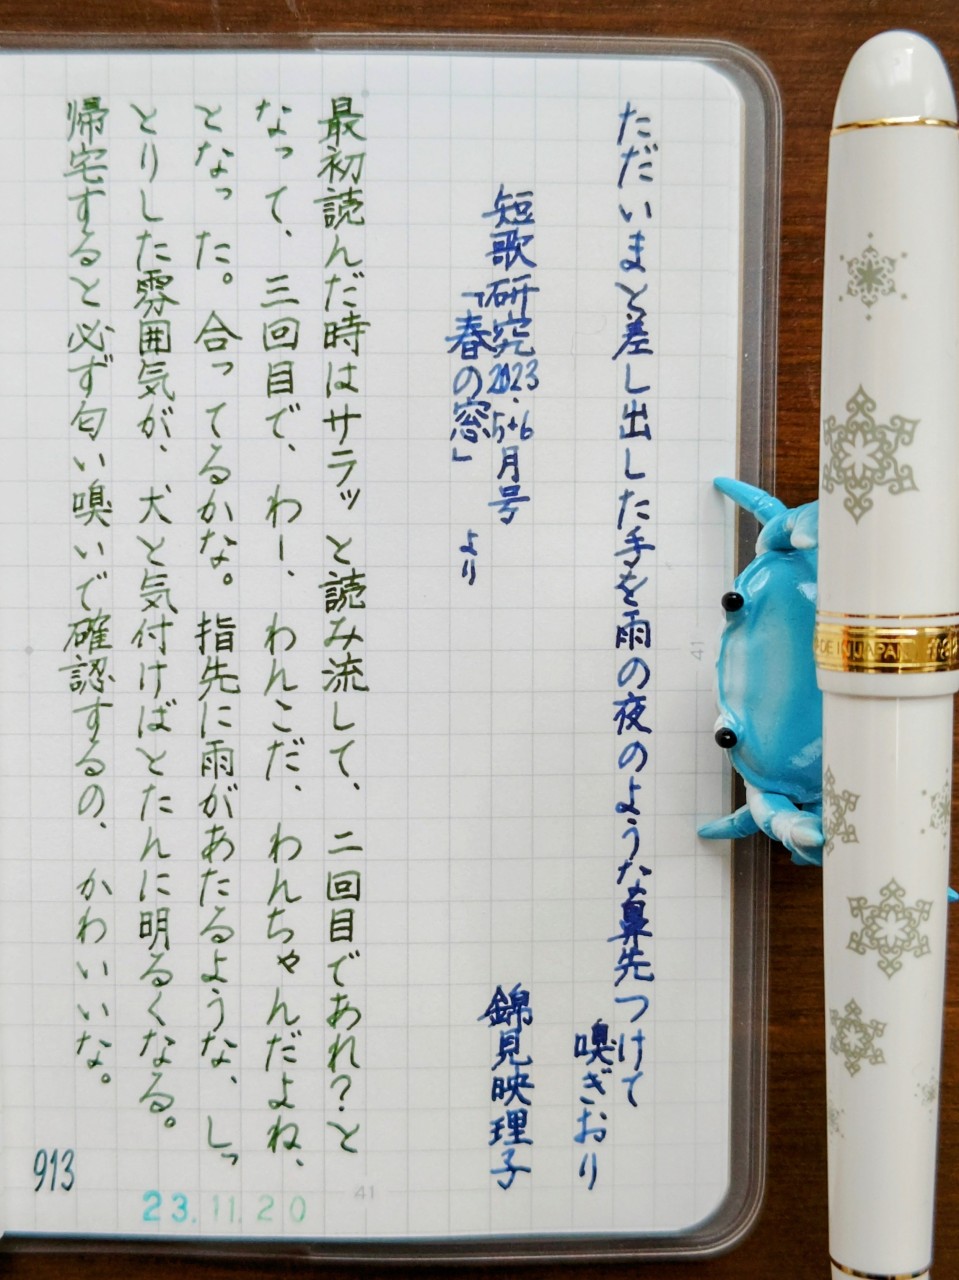 ただいまと差し出した手を雨の夜のような鼻先つけて
嗅ぎおり
短歌研究2023.5+6月号
「春の窓」より
錦見映理子
最初読んだ時はサラッと読み流して、二回目であれ?と
なって、三回目で、わー、わんこだ、わんちゃんだよね、
となった。合ってるかな。指先に雨があたるような、しっ
とりした雰囲気が、犬と気付けばとたんに明るくなる。
帰宅すると必ず匂い嗅いで確認するの、かわいいな。
913
23.11.20
41
41
DE IN JAPAN